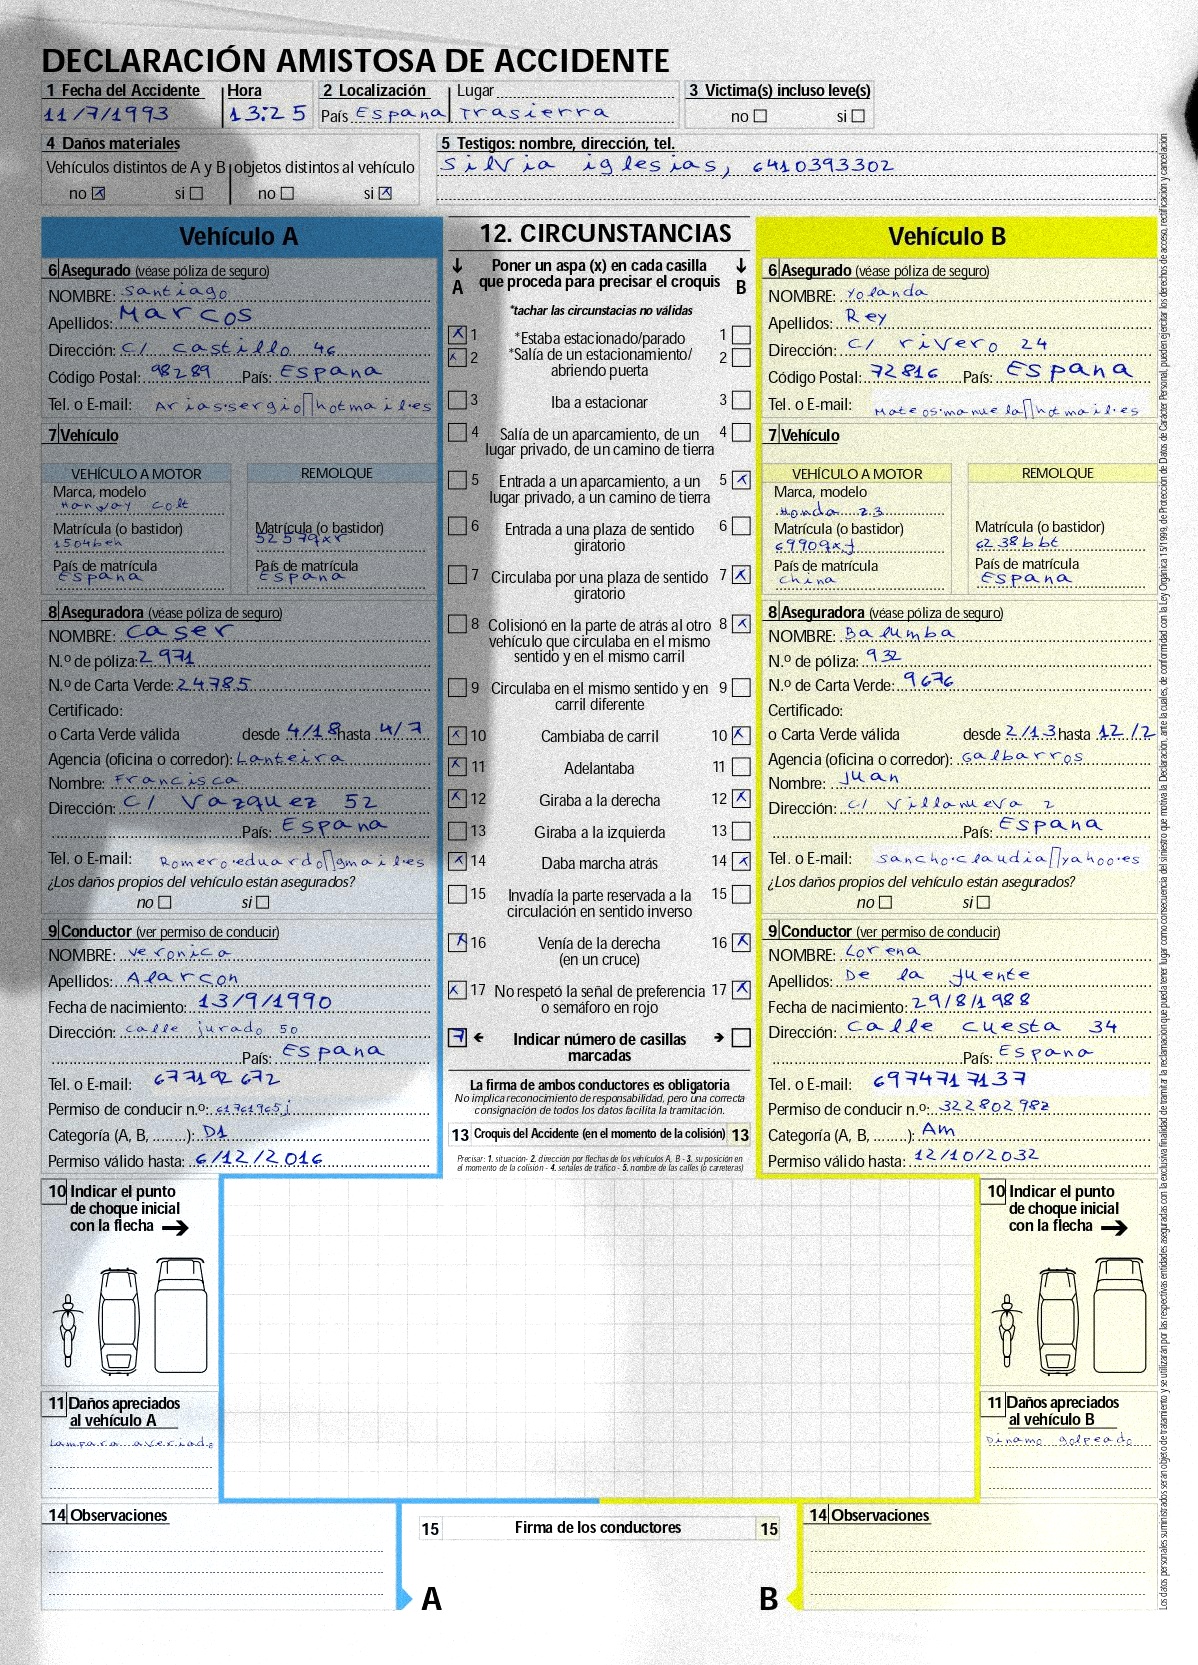 DECLARACIÓN AMISTOSA DE ACCIDENTE
1 Fecha del Accidente Hora 2 Localización Lugar 3 Victima(s) incluso leve(s)
11/7/1993 13:25 País Espana Trasierra no si
4 Daños materiales
Vehículos distintos de A y B objetos distintos al vehículo
no x si no si x
5 Testigos: nombre, dirección, tel.
Silvia iglesias, 6410393302
Vehículo A
6 Asegurado (véase póliza de seguro)
NOMBRE: Santiago
Apellidos: Marcos
Dirección: C/ castillo 46
Código Postal: 98289 País: Espana
Tel. o E-mail: Arias.sergio hotmail.es
7 Vehículo
VEHÍCULO A MOTOR REMOLQUE
Marca, modelo
Hanway colt
Matrícula (o bastidor) Matrícula (o bastidor)
1504beh 52579qxr
País de matrícula País de matrícula
Espana Espana
8 Aseguradora (véase póliza de seguro)
NOMBRE: Caser
N.º de póliza: 2971
N.º de Carta Verde: 24785
Certificado:
o Carta Verde válida desde 4/18 hasta 4/7
Agencia (oficina o corredor): Lanteira
Nombre: Francisca
Dirección: C/ Vazquez 52
País: Espana
Tel. o E-mail: Romero.eduardo gmail.es
¿Los daños propios del vehículo están asegurados?
no si
9 Conductor (ver permiso de conducir)
NOMBRE: Veronica
Apellidos: Alarcon
Fecha de nacimiento: 13/9/1990
Dirección: calle jurado 50
País: Espana
Tel. o E-mail: 677192672
Permiso de conducir n.º: 61761965j
Categoría (A, B, ........): D1
Permiso válido hasta: 6/12/2016
12. CIRCUNSTANCIAS
Poner un aspa (x) en cada casilla
A que proceda para precisar el croquis B
*tachar las circunstacias no válidas
x 1 *Estaba estacionado/parado 1
x 2 *Salía de un estacionamiento/ 2
abriendo puerta
3 Iba a estacionar 3
4 Salía de un aparcamiento, de un 4
lugar privado, de un camino de tierra
5 Entrada a un aparcamiento, a un 5 x
lugar privado, a un camino de tierra
6 Entrada a una plaza de sentido 6
giratorio
7 Circulaba por una plaza de sentido 7 x
giratorio
8 Colisionó en la parte de atrás al otro 8 x
vehículo que circulaba en el mismo
sentido y en el mismo carril
9 Circulaba en el mismo sentido y en 9
carril diferente
x 10 Cambiaba de carril 10 x
x 11 Adelantaba 11
x 12 Giraba a la derecha 12 x
13 Giraba a la izquierda 13
x 14 Daba marcha atrás 14 x
15 Invadía la parte reservada a la 15
circulación en sentido inverso
x 16 Venía de la derecha 16 x
(en un cruce)
x 17 No respetó la señal de preferencia 17 x
o semáforo en rojo
7 Indicar número de casillas
marcadas
La firma de ambos conductores es obligatoria
No implica reconocimiento de responsabilidad, pero una correcta
consignación de todos los datos facilita la tramitación.
13 Croquis del Accidente (en el momento de la colisión) 13
Precisar: 1. situación- 2. dirección por flechas de los vehículos A, B - 3. su posición en
el momento de la colisión - 4. señales de tráfico - 5. nombre de las calles (o carreteras)
Vehículo B
6 Asegurado (véase póliza de seguro)
NOMBRE: Yolanda
Apellidos: Rey
Dirección: C/ rivero 24
Código Postal: 72816 País: Espana
Tel. o E-mail: Mateos.manuela hotmail.es
7 Vehículo
VEHÍCULO A MOTOR REMOLQUE
Marca, modelo
Honda z3
Matrícula (o bastidor) Matrícula (o bastidor)
69909xf 6238bbt
País de matrícula País de matrícula
China Espana
8 Aseguradora (véase póliza de seguro)
NOMBRE: Balumba
N.º de póliza: 932
N.º de Carta Verde: 9676
Certificado:
o Carta Verde válida desde 2/13 hasta 12/2
Agencia (oficina o corredor): Galbarros
Nombre: Juan
Dirección: C/ Villanueva 2
País: Espana
Tel. o E-mail: Sancho.claudia yahoo.es
¿Los daños propios del vehículo están asegurados?
no si
9 Conductor (ver permiso de conducir)
NOMBRE: Lorena
Apellidos: De la fuente
Fecha de nacimiento: 29/8/1988
Dirección: Calle cuesta 34
País: Espana
Tel. o E-mail: 6974717137
Permiso de conducir n.º: 32280298z
Categoría (A, B, ........): Am
Permiso válido hasta: 12/10/2032
10 Indicar el punto
de choque inicial
con la flecha
11 Daños apreciados
al vehículo A
Lampara averiado
14 Observaciones
10 Indicar el punto
de choque inicial
con la flecha
11 Daños apreciados
al vehículo B
Dinamo golpeado
14 Observaciones
15 Firma de los conductores 15
A B
Los datos personales suministrados seran objeto de tratamiento y se utilizarán por las respectivas entidades aseguradas con la exclusiva finalidad de tramitar la reclamación que pueda tener lugar como consecuencia del siniestro que motiva la Declaración, ante la cuales, de conformidad con la Ley Orgánica 15/1999, de Protección de Datos de Carácter Personal, pueden ejercitar los derechos de acceso, rectificación y cancelación